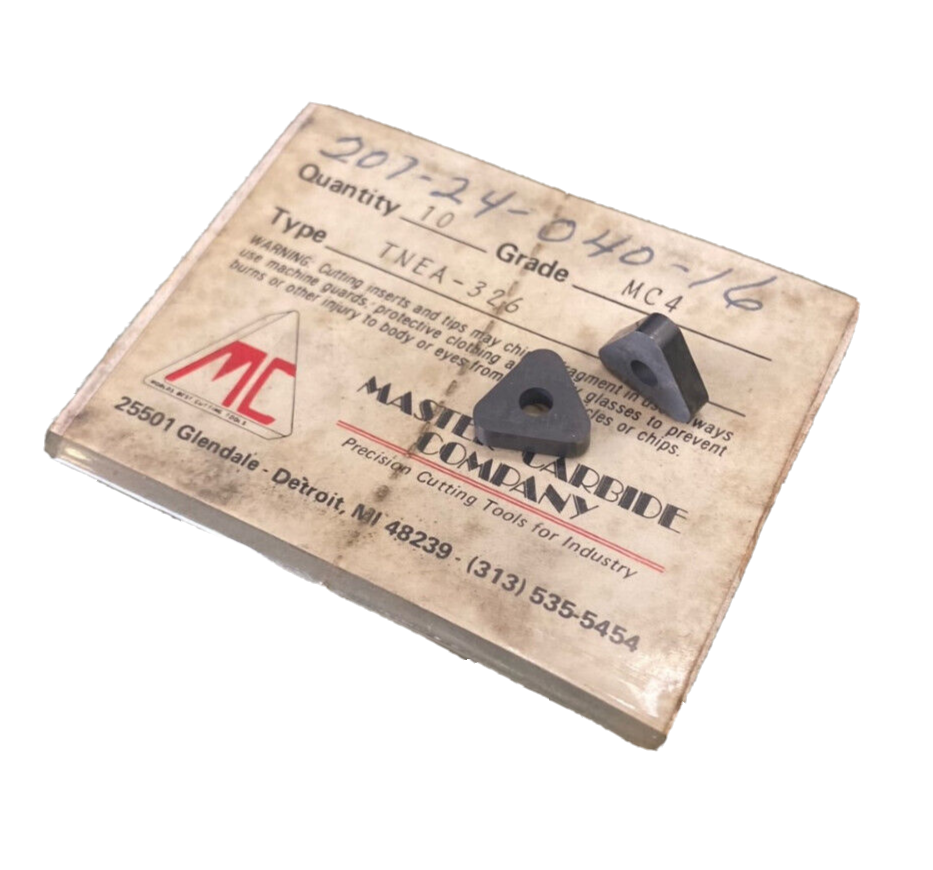 207-24-040-16
Quantity 10 Grade MC4
Type TNEA-326
WARNING: Cutting inserts and tips may chip fragment in use. Always
use machine guards, protective clothing glasses to prevent
burns or other injury to body or eyes from or chips.
MC
WORLDS BEST CUTTING TOOLS
MASTER CARBIDE
COMPANY
Precision Cutting Tools for Industry
25501 Glendale - Detroit, MI 48239 - (313) 535-5454